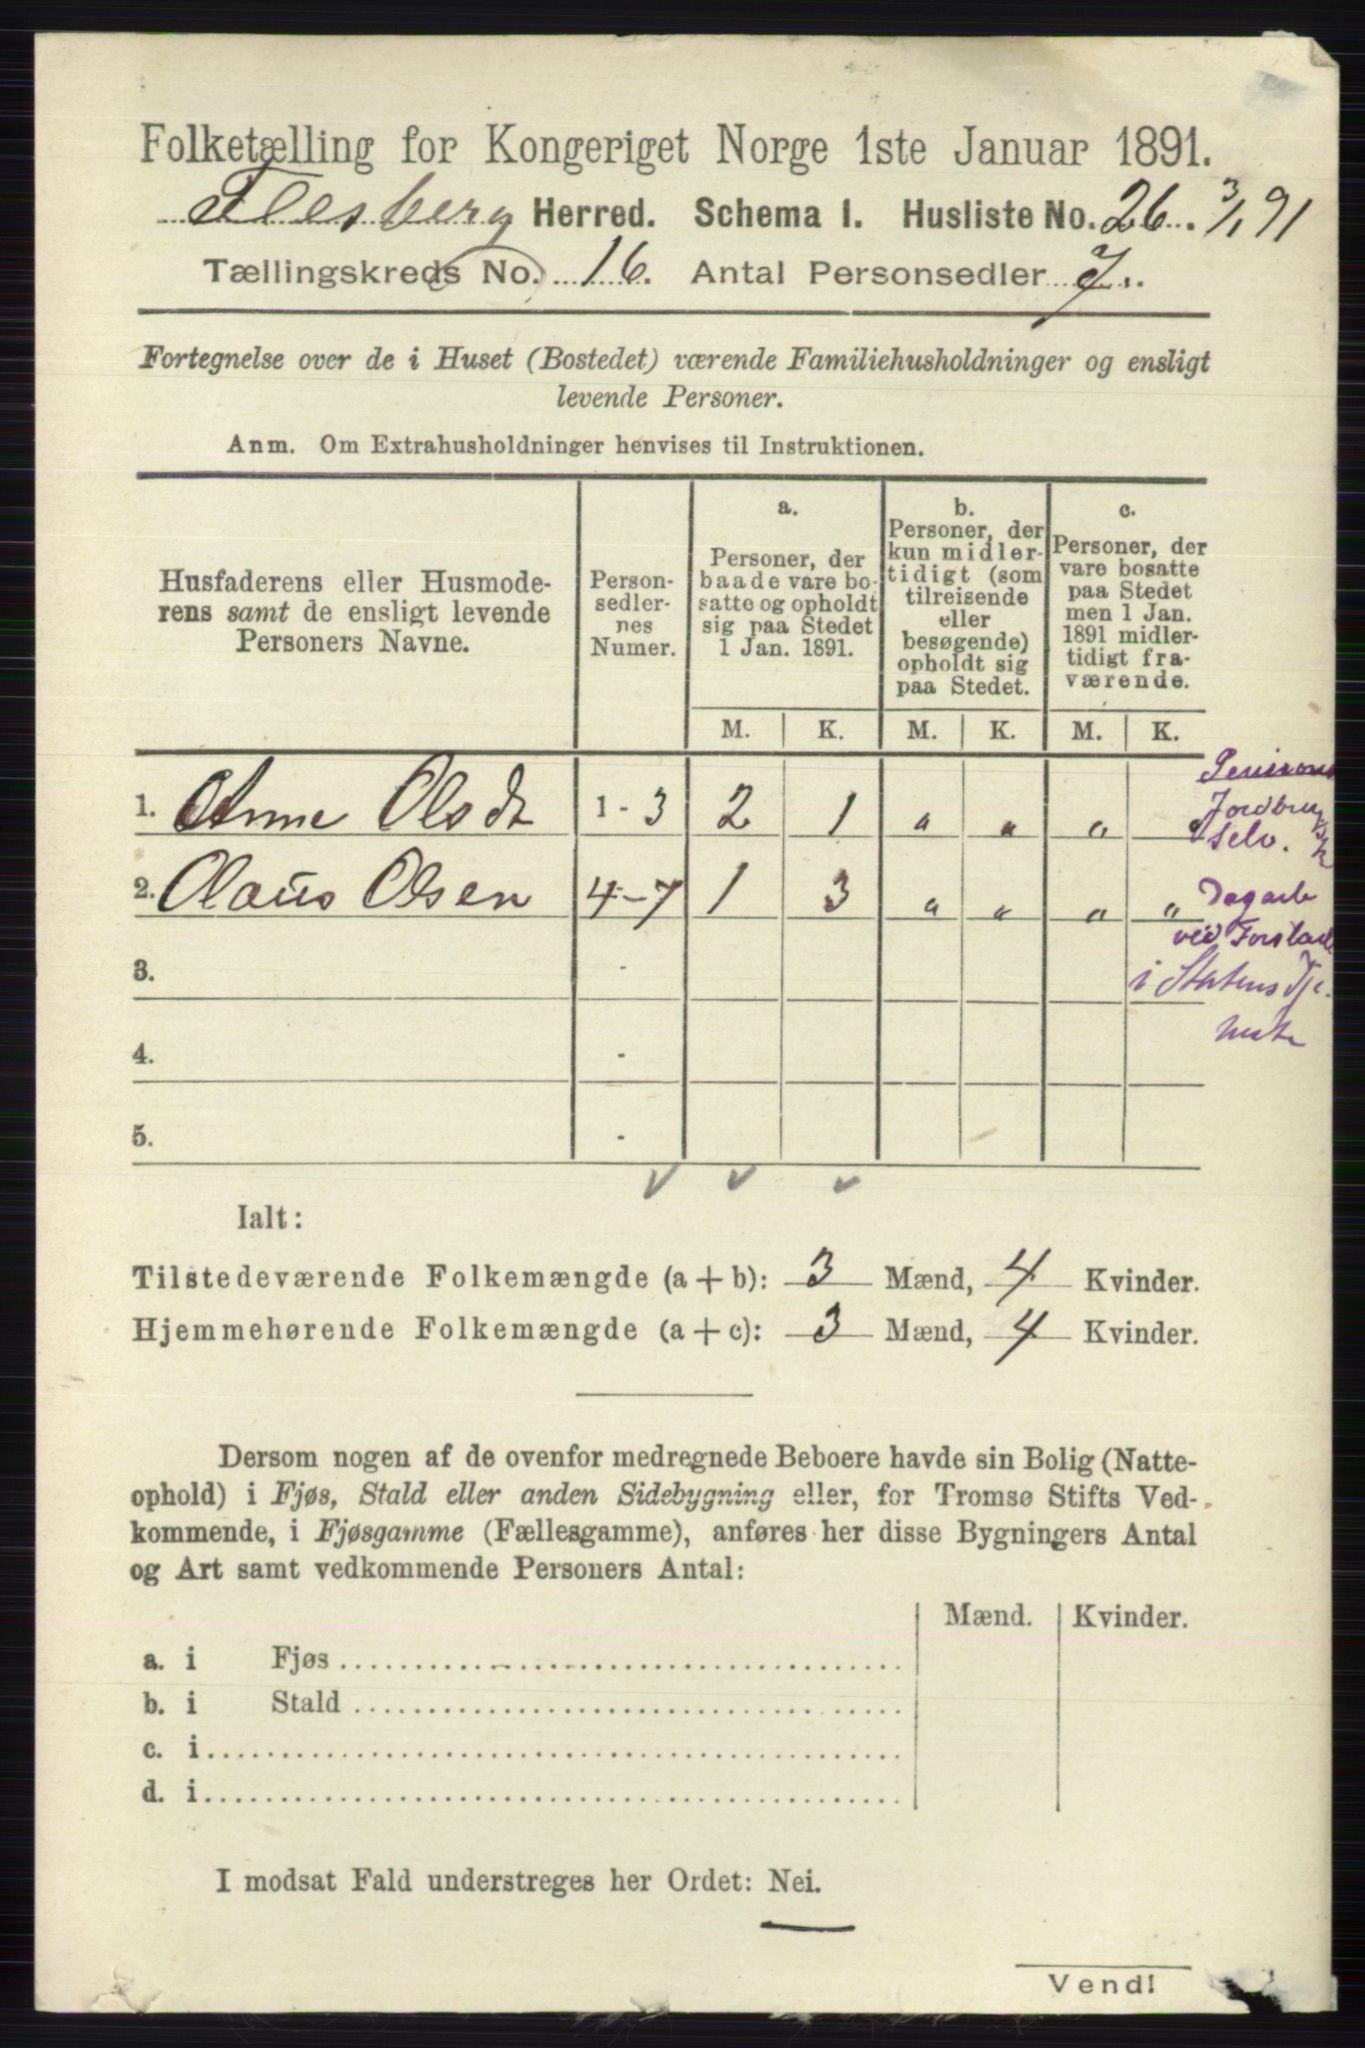 Folketælling for Kongeriget Norge 1ste Januar 1891.
Flesberg Herred. Schema I. Husliste No. 26. 3/1 91
Tællingskreds No. 16. Antal Personsedler 7.
Fortegnelse over de i Huset (Bostedet) værende Familiehusholdninger og ensligt
levende Personer.
Anm. Om Extrahusholdninger henvises til Instruktionen.
Husfaderens eller Husmode-
rens samt de ensligt levende
Personers Navne.
Person-
sedler-
nes
Numer.
a.
Personer, der
baade vare bo-
satte og opholdt
sig paa Stedet
1 Jan. 1891.
b.
Personer, der
kun midler-
tidigt (som
tilreisende
eller
besøgende)
opholdt sig
paa Stedet.
c.
Personer, der
vare bosatte
paa Stedet
men 1 Jan.
1891 midler-
tidigt fra-
værende.
M. K. M. K. M. K.
1. Anne Olsdt 1-3 2 1 " " " "
Jordbrug
selv.
2. Olaus Olsen 4-7 1 3 " " " "
Dagarb
ved
i Statens Tje-
neste
3. -
4. -
5. -
Ialt:
Tilstedeværende Folkemængde (a+b): 3 Mænd, 4 Kvinder.
Hjemmehørende Folkemængde (a+c): 3 Mænd, 4 Kvinder.
Dersom nogen af de ovenfor medregnede Beboere havde sin Bolig (Natte-
ophold) i Fjøs, Stald eller anden Sidebygning eller, for Tromsø Stifts Ved-
kommende, i Fjøsgamme (Fællesgamme), anføres her disse Bygningers Antal
og Art samt vedkommende Personers Antal:
Mænd. Kvinder.
a. i Fjøs
b. i Stald
c. i
d. i
I modsat Fald understreges her Ordet: Nei.
Vend!